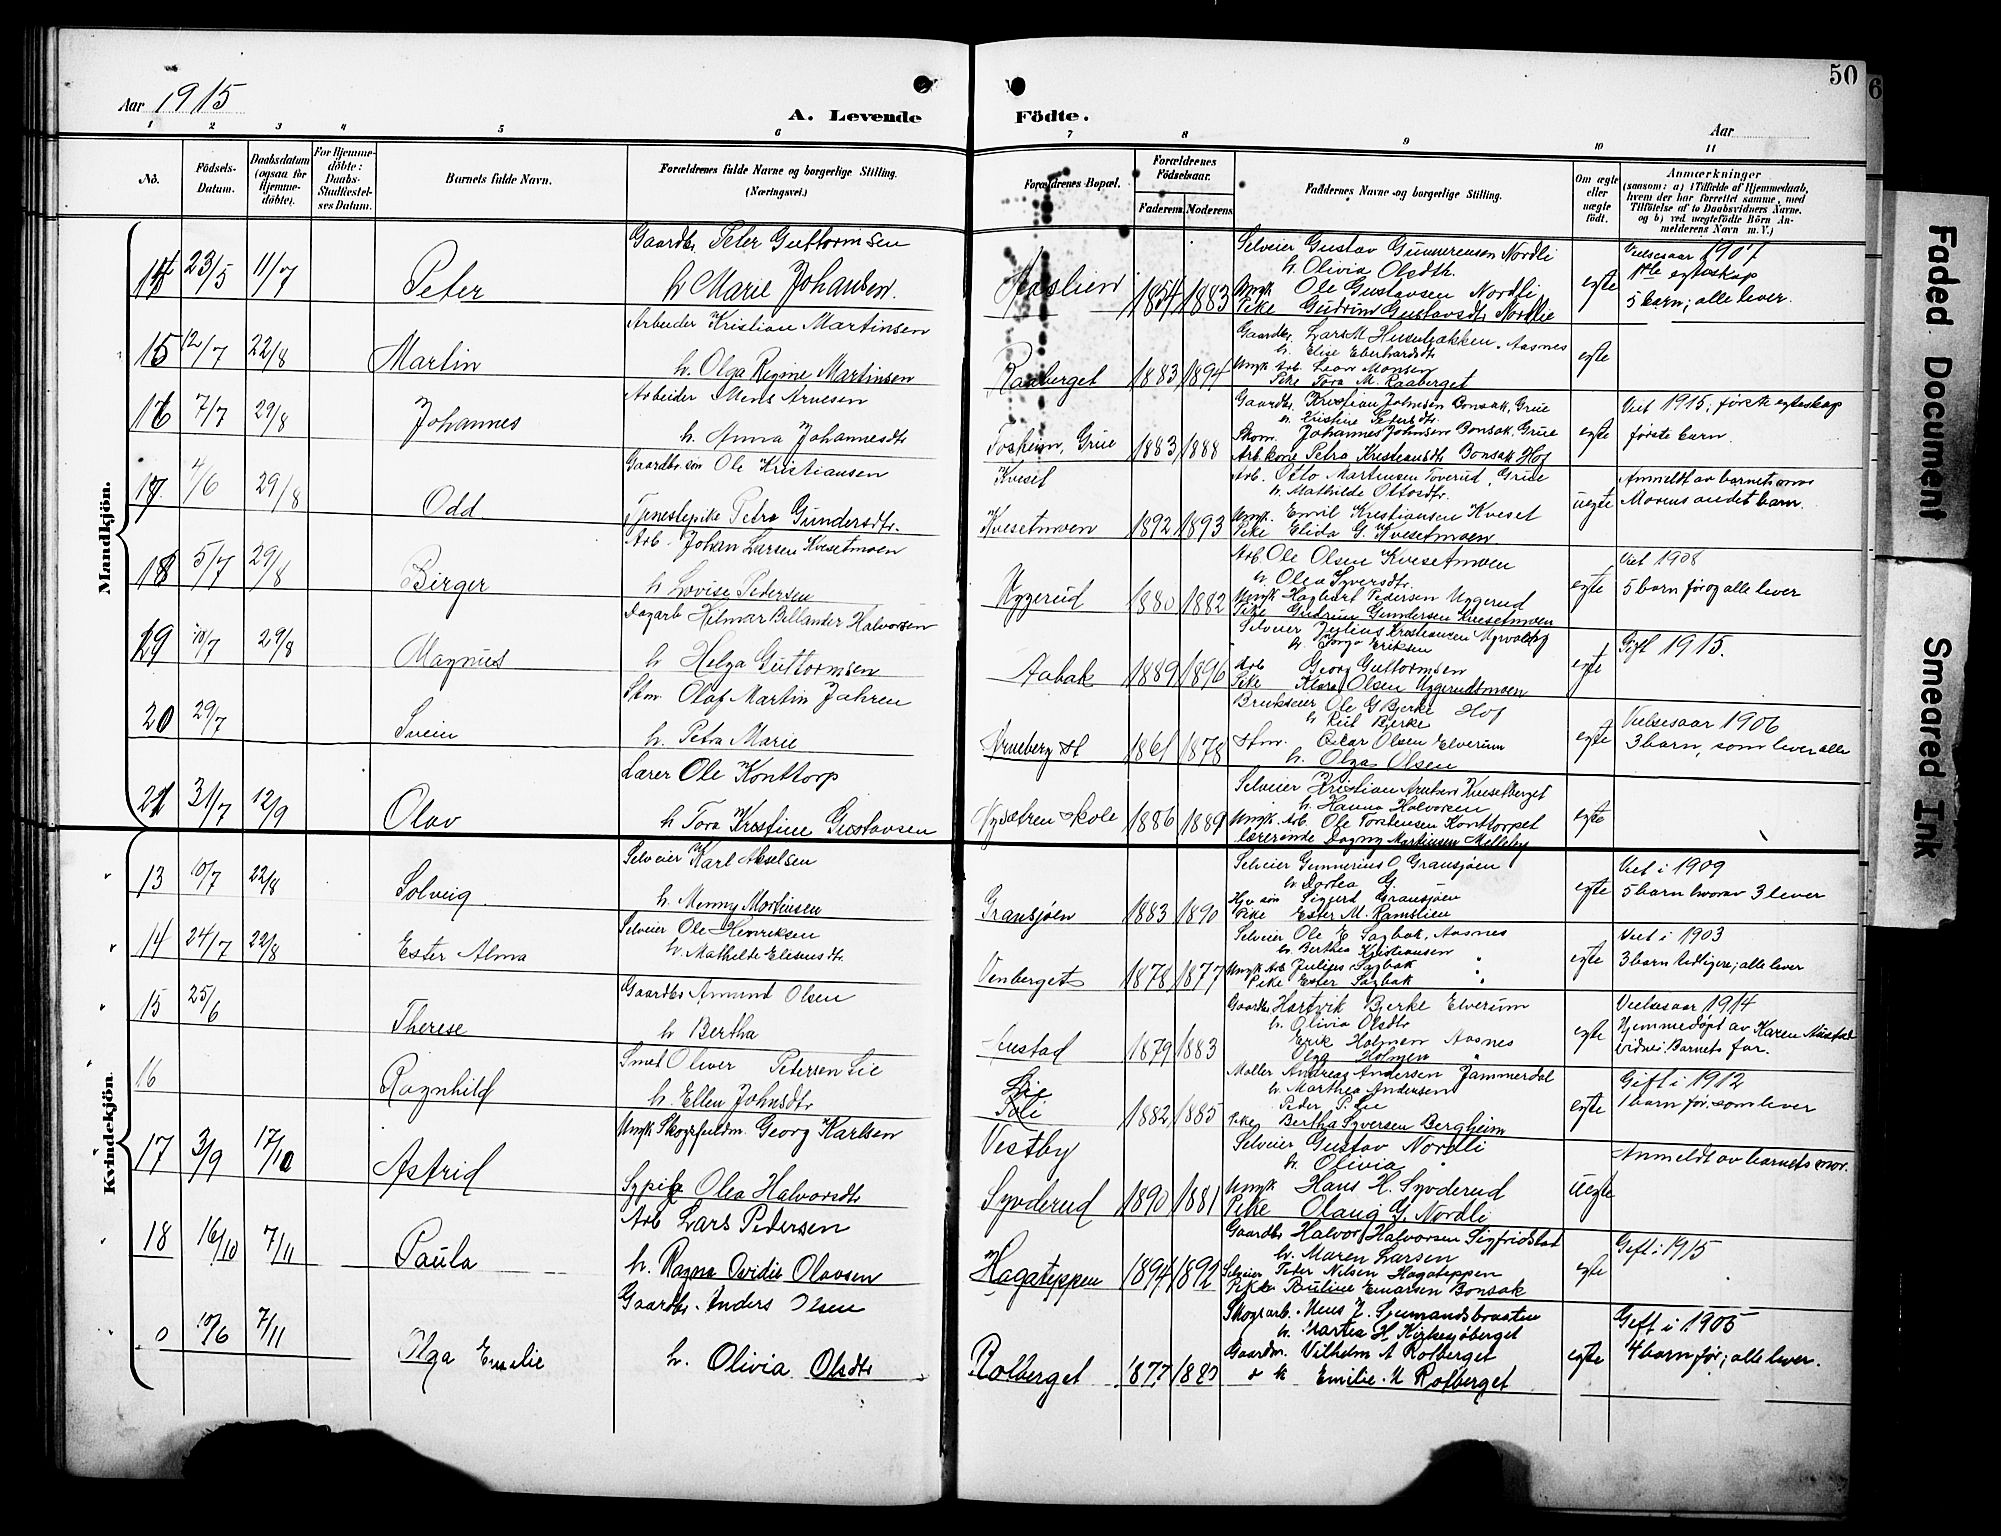 50
6
Aar 1915
A. Levende Födte.
Aar
1 2 3 4 5 6 7 8 9 10 11
No.
Födsels-Datum.
Daabsdatum (ogsaa for Hjemme-döbte).
For Hjemme-döbte: Daabs-Stadfæstel-ses Datum.
Barnets fulde Navn.
Forældrenes fulde Navne og borgerlige Stilling. (Næringsvei.)
Forældrenes Bopæl.
Forældrenes Födselsaar.
Faderens Moderens
Faddernes Navne og borgerlige Stilling.
Om ægte eller uægte födt.
Anmærkninger
(saasom: a) i Tilfælde af Hjemmedaab,
hvem der har forrettet samme, med
Tilföielse af to Daabsvidners Navne.
og b) ved uægtefödte Börn An-
melderens Navn m. V.)
Mandkjön.
14 23/5 11/7 Peter
Gaardbr. Peter Guttormsen
h. Marie Johansen.
Haslien 1854 1883
Selveier Gustav Gunnerenson Nordli
h. Olivia Olsdtr.
Ungk Ole Gustavsen Nordli
Pike Gudrun Gustavsdtr Nordlie
egte
Vielsesaar 1907
1ste egteskap
5 barn; alle lever.
15 12/7 22/8 Martin
Arbeider Kristian Martinsen
h. Olga Regine Martinsen
Raaberget 1883 1894
Gaardbr. Lars M Husebækken, Aasnes
h. Elise Eberhardsdtr
Ungk. Arb. Leon Monsen
Pike Tora M. Raaberget
egte
16 7/7 29/8 Johannes
Arbeider Mens Arnesen
h. Anna Johannesdtr
Foskeim, Grue 1883 1888
Gaardbr. Kristian Johnsen Bonsak, Grue
h. Kristine Petersdtr
Skom. Johannes Johnsen Bonsak, Grue
Arb.kone Petra Kristiansdtr Bonsak Hof
egte
Viet 1915; første egteskap
første barn.
17. 4/6 29/8 Odd
Gaardbr.søn Ole Kristiansen
Tjenestepike Petra Gundersdtr.
Kveset
Kvesetmoen 1892 1893
Arb. Otto Martinsen Toverud, Grue
h. Mathilde Ottosdtr.
Ungk. Emil Kristiansen Kveset
Pike Elida G. Kvesetmoen
uegte
Anmeldt av barnets mor
Morens andet barn.
18 5/7 29/8 Birger
Arb. Johan Larsen Kvesetmoen
h Lovise Pedersen
Uggerud 1880 1882
Arb Ole Olsen Kvesetmoen
h. Olea Syversdtr.
Ungk Hagbart Pedersen Uggerud
Pike Gudrun Gundersen Kvesetmoen
egte
Viet 1908
5 barn før og alle lever
19 10/7 29/8 Magnus
Dagarb Hilmar Bellander Halvorsen
h Helga Guttormsen
Aabak 1889 1896
Selveier Julius Kristiansen
Arb Georg Guttormsen
Pike Klara Olsen Uggerudmoen
egte
Gift 1915.
20 29/7 Svein
Skm Olaf Martin Jahren
h. Petra Marie
Arneberg st 1861 1878
Brukseier Ole G Bjerke Hof
Hm. Oscar Olsen Elverum
h. Olga Olsen
egte
Vielsesaar 1906
3 barn, som lever alle
21 31/7 12/9 Olav
Lærer Ole Konttorp
h Tora Kristine Gustavsen
Nysætren skole 1886 1889
Selveier Kristian Arntsen Kvesetberget
h. Hanna Halvorsen
Ungk. Arb. Ole Torstensen Konttorpet
lærerinde Dagny Martinsen Melleby
egte
Kvindekjön.
13 10/7 22/8 Solveig
Selveier Karl Akselsen
h. Menny Mortensen
Gransjøen 1883 1890
Selveier Gunnerius O Gransjøen
h. Dortea G.
Hjv søn Siggerd Gransjøen
Pike Ester M. Ramslien
egte
Viet i 1909
5 barn hvorav 3 lever
14 24/7 22/8 Ester Alma
Selveier Ole Henriksen
h. Mathilde Eliasdtr.
Venberget 1878 1877
Selveier Ole E Sagbak, Aasnes
h. Berthea Kristiansen "
Ungk Arb Julius Sagbak "
Pike Ester Sagbak
egte
Viet i 1903
3 barn tidligere; alle lever
15 25/6 Therese
Gaardbr Amund Olsen
h Bertha
Austad 1879 1883
Gaardbr Hartvik Bjerke Elverum
h. Olivia Olsdtr
Erik Holmen Aasnes
Olga Holmen "
egte
Vielsesaar 1914
Hjemmedøpt av Karen Austad
vidne: Barnets far.
16 Ragnhild
Smed Oliver Petersen Lie
h. Ellen Johnsdtr
Lie 1882 1885
Møller Andreas Andersen Jammerdal
h. Marthea Andersen
Peder P. Lie
Pike Bertha Syversen Bergheim
egte
Gift i 1912
1 barn før som lever
17 3/9 17/10 Astrid
Ungk Skogsfuldm. Georg Karlsen
Sypike Olea Halvorsdtr
Vestby
Syvderud 1890 1881
Selveier Gustav Nordli
h. Olivia "
Ungk Hans H. Syvderud
Pike Olaug G. Nordli
uegte
Anmeldt av barnets mor.
18 16/10 7/11 Paula
Arb Lars Pedersen
h. Ragna Ovidie Olavsen
Hagateppen 1894 1892
Gaardbr Halvor Halvorsen Sigfridstad
h. Maren Larsen
Selveier Peter Nilsen Hagateppen
Pike Pauline Einarsen Bonsak
egte
Gift i 1915
10/6 7/11 Olga Emelie
Gaardbr. Anders Olsen
h. Olivia Olsdtr
Rotberget 1877
Skogsarb.
h. Martea H. Kirkesjøberget
Gaardm. Vilhelm A Rotberget
Emilie Rotberget
egte
Gift i 1905
4 barn før; alle lever.
Faded Document
Smeared Ink